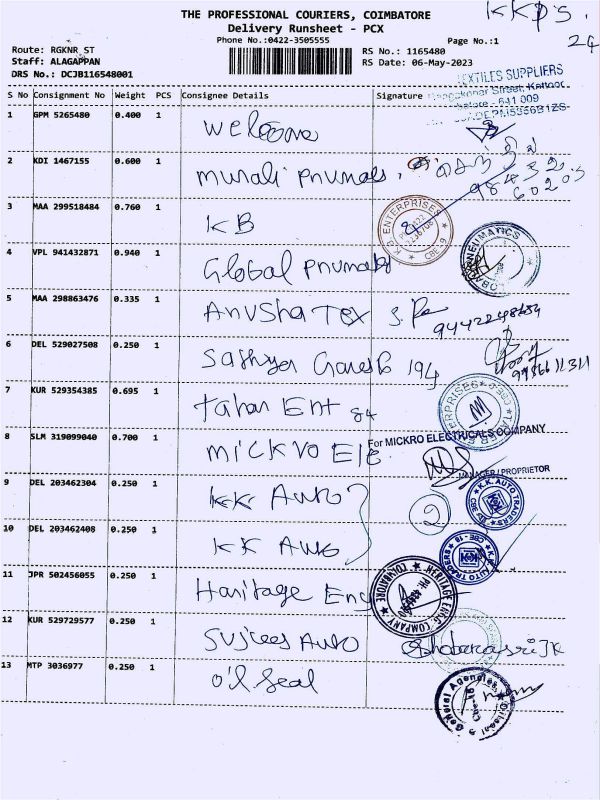 THE PROFESSIONAL COURIERS, COIMBATORE
KKDS.
Delivery Runsheet - PCX
Phone No.:0422-3505555
Page No.:1
24
Route: RGKNR_ST
RS No.: 1165480
Staff: ALAGAPPAN
RS Date: 06-May-2023
DRS No.: DCJB116548001
TEXTILES SUPPLIERS
Street, Kattoor
641 009
S No Consignment No Weight PCS Consignee Details Signature
1 GPM 5265480 0.400 1 Welcome
2 KDI 1467155 0.600 1 Murali Pnumats.
98432
60203
3 MAA 299518484 0.760 1 KB
K.B ENTERPRISES CBE-9
4 VPL 941432871 0.940 1 Global Pnumats
GLOBAL PNEUMATICS
5 MAA 298863476 0.335 1 Anusha Tex
6 DEL 529027508 0.250 1 Sathya Ganesh 194
7 KUR 529354385 0.695 1 Tahar Ent 84
ENTERPRISES
8 SLM 319099040 0.700 1 Mickro Ele
For MICKRO ELECTRICALS COMPANY
MANAGER / PROPRIETOR
9 DEL 203462304 0.250 1 KK Auto
2
K.K. AUTO TRADERS
10 DEL 203462408 0.250 1 KK Auto
K.K. AUTO TRADERS CBE - 18
11 JPR 502456055 0.250 1 Haritage Eng
HERITAGE ENGG. COMPANY COIMBATORE
12 KUR 529729577 0.250 1 Sujees Auto
13 MTP 3036977 0.250 1 Oil Seal
Oilseal & General Agencies